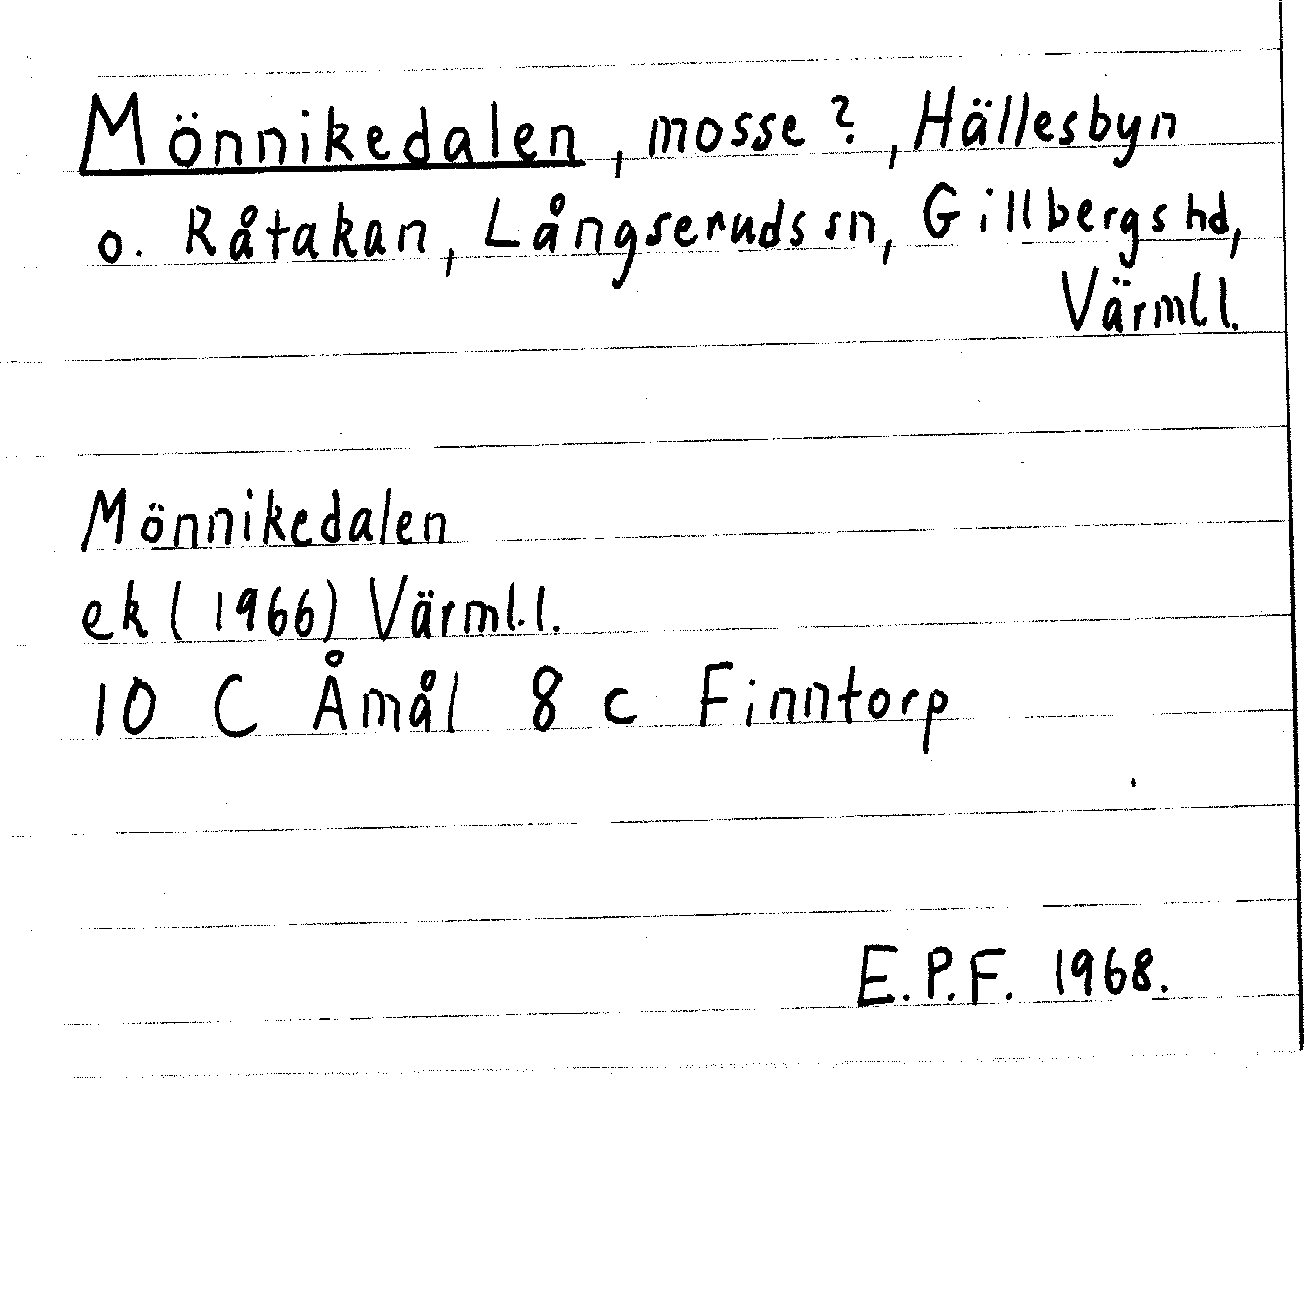 Mönnikedalen, mosse?, Hällesbyn
o. Råtakan, Långseruds sn, Gillbergs hd,
Värml l.
Mönnikedalen
ek (1966) Värml. l.
10 C Åmål 8 c Finntorp
E.P.F. 1968.